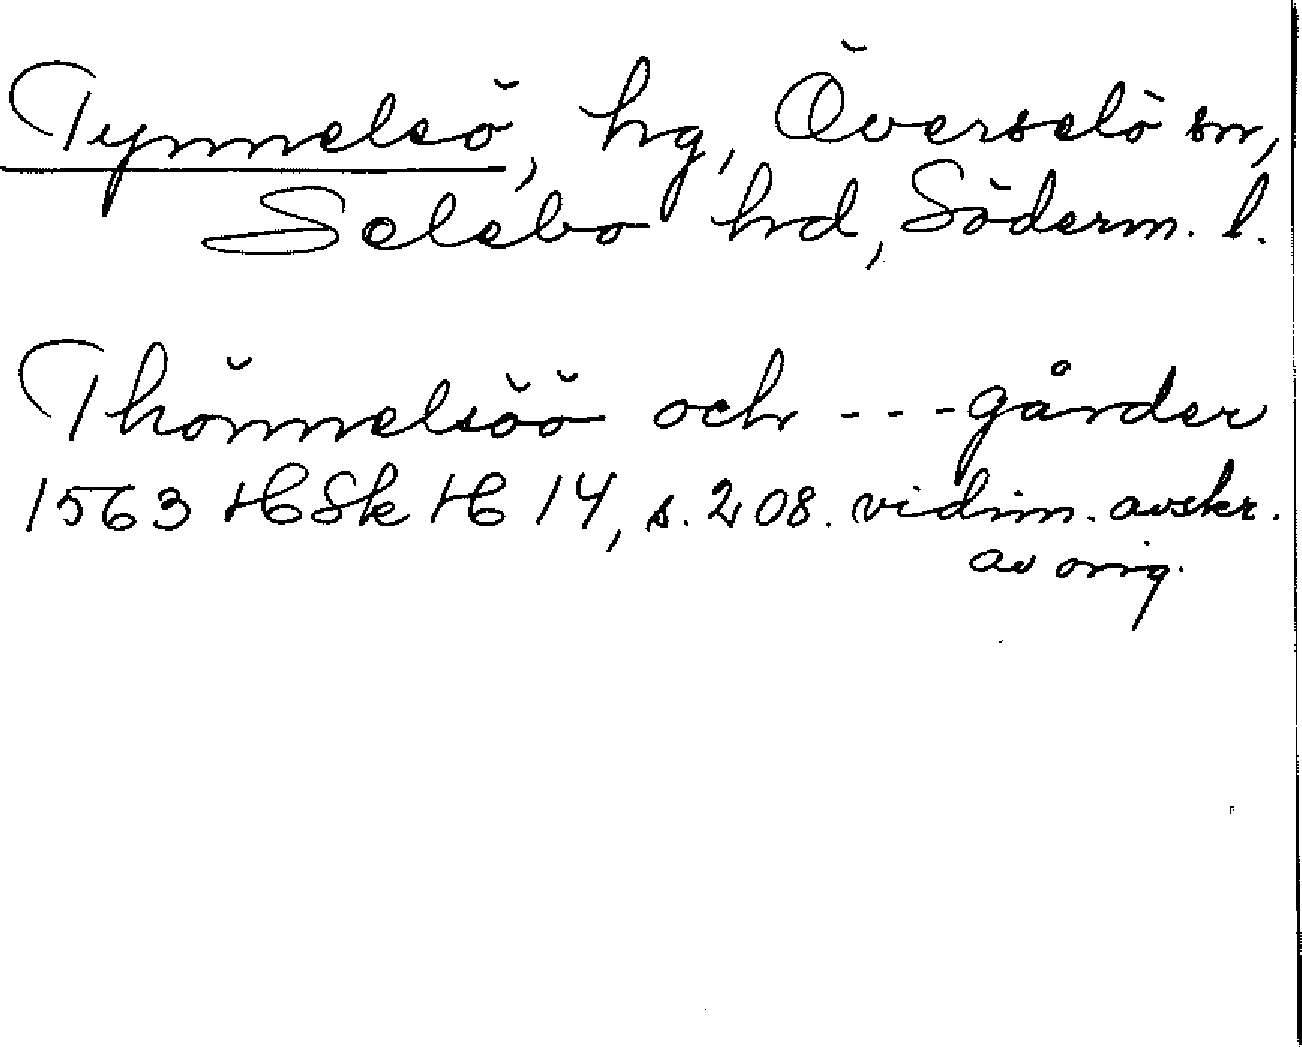 Tynnelsö, hg, Överselö sn,
Selebo hd, Söderm. l.
Thönnelsöö och --- gårder
1563 HSk H 14, s. 208. vidim. avskr.
av orig.